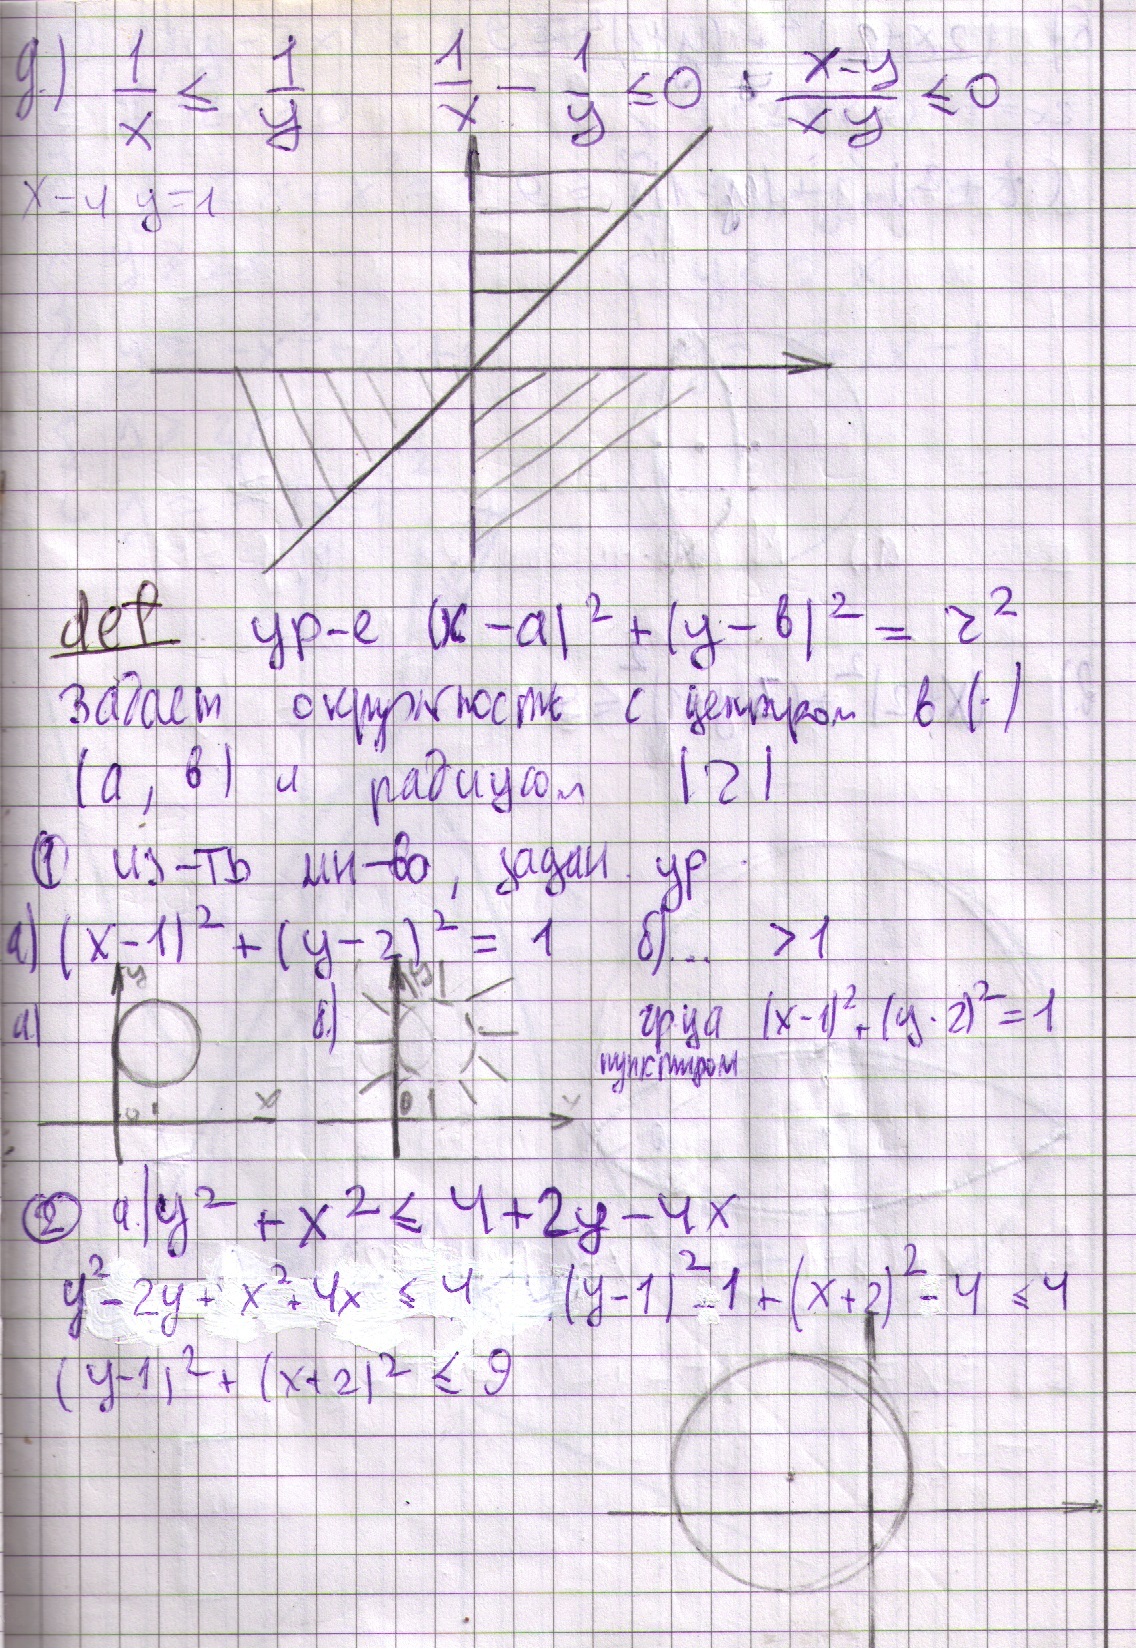 д.) 1/x ≤ 1/y 1/x - 1/y ≤ 0 (x-y)/(xy) ≤ 0
x=4 y=1
def ур-е (x-a)² + (y-в)² = r²
задает окружность с центром в (·)
(a, в) и радиусом |r|
① из-ть мн-во, задан. ур.
а) (x-1)² + (y-2)² = 1 б)... > 1
а) y x 0 1 б) y x 0 1 гр-ца (x-1)² + (y-2)² = 1
пунктиром
② а) y² + x² ≤ 4 + 2y - 4x
y² - 2y + x² + 4x ≤ 4 (y-1)² - 1 + (x+2)² - 4 ≤ 4
(y-1)² + (x+2)² ≤ 9